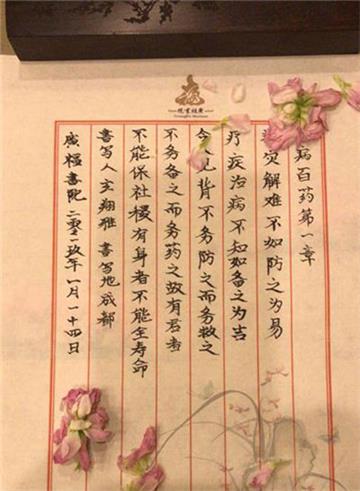 病百药第一章
灾解难 不如防之为易
疗疾治病 不如备之为吉
今见背 不务防之而务救之
不务备之而务药之故有君者
不能保社稷有身者不能全寿命
書写人玄翔雅 書写地成都
感極書院 二零一玖年一月一十四日